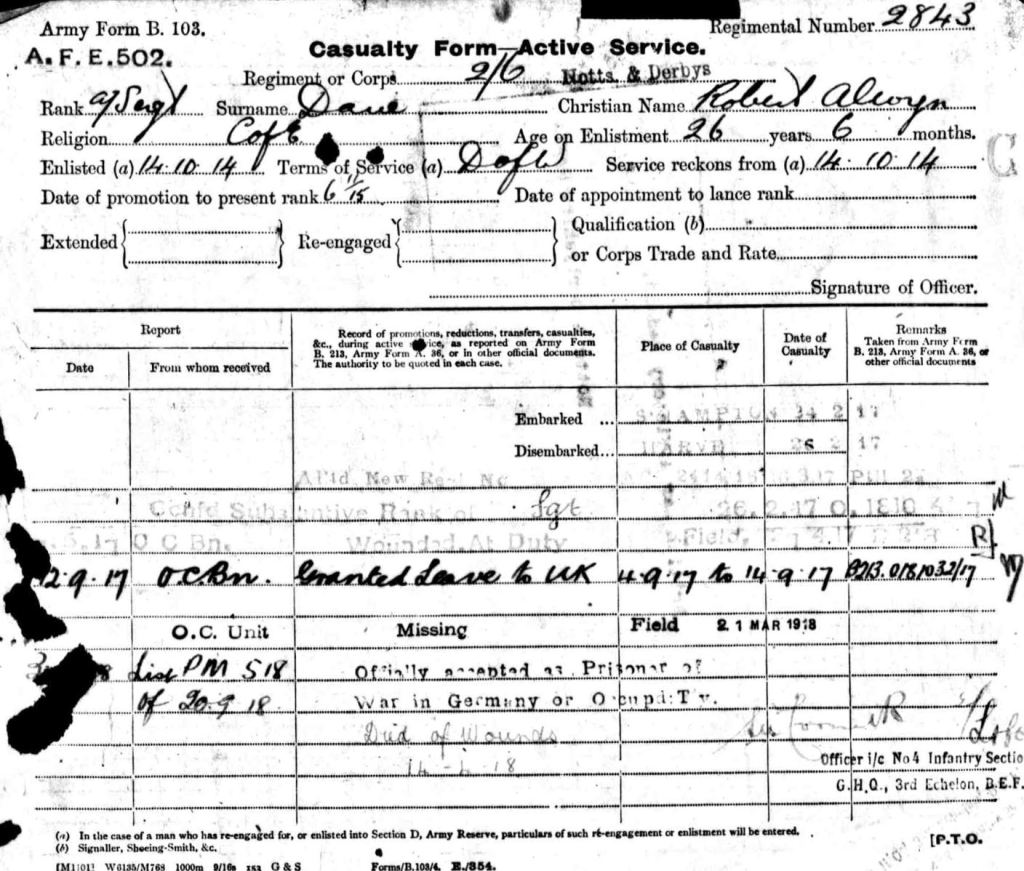 Army Form B. 103.
Regimental Number 2843
A. F. E. 502.
Casualty Form—Active Service.
Regiment or Corps 2/6 Notts. & Derbys
Rank a/Sergt Surname Dane Christian Name Robert Alwyn
Religion C of E. Age on Enlistment 26 years 6 months.
Enlisted (a) 14.10.14 Terms of Service (a) DofW Service reckons from (a) 14.10.14
Date of promotion to present rank 6 11/15 Date of appointment to lance rank
Extended Re-engaged Qualification (b)
or Corps Trade and Rate
Signature of Officer.
Report
Date
From whom received
Record of promotions, reductions, transfers, casualties, &c., during active service, as reported on Army Form B. 213, Army Form A. 36, or in other official documents. The authority to be quoted in each case.
Place of Casualty
Date of Casualty
Remarks
Taken from Army Form B. 213, Army Form A. 36, or other official documents
Embarked ... S'HAMPTON 24 2 17
Disembarked... 26 2 17
All'td New Regl No
Confd Substantive Rank of Sgt 26.2.17
5.17 O C Bn. Wounded. At Duty Field,
R}
12.9.17 O C Bn. Granted Leave to UK 4.9.17 to 14.9.17 B213.
O.C. Unit Missing Field 21 MAR 1918
List PM 518 Officially accepted as Prisoner of
of 20.9.18 War in Germany or Occupd: Ty.
Died of Wounds
18
Officer i/c No 4 Infantry Sectio
G.H.Q., 3rd Echelon, B.E.F.
(a) In the case of a man who has re-engaged for, or enlisted into Section D, Army Reserve, particulars of such re-engagement or enlistment will be entered.
(b) Signaller, Shoeing-Smith, &c.
[P.T.O.
[M1101] W6135/M768 1000m 9/16s 153 G & S Forms/B.103/4. E./354.